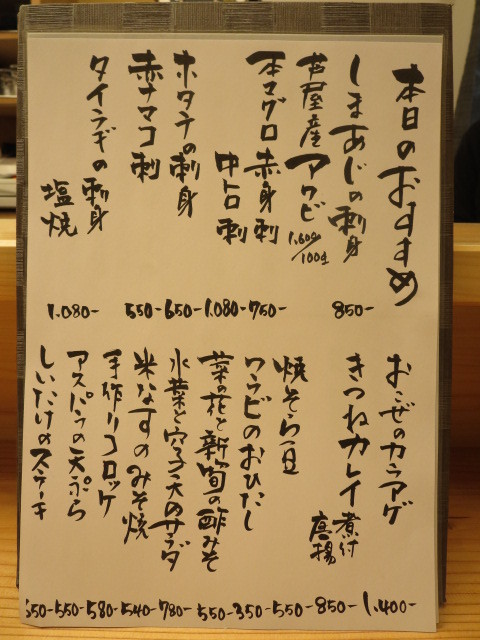 本日のおすすめ
しまあじの刺身 850-
芦屋産アワビ 1,600/100g
本マグロ 赤身刺 750-
中トロ刺 1,080-
ホタテの刺身 650-
赤ナマコ刺 550-
タイラギの刺身
塩焼 1,080-
おこぜのカラアゲ 1,400-
きつねカレイ煮付
唐揚 850-
焼そら豆 550-
ワラビのおひたし 350-
菜の花と新筍の酢みそ 550-
水菜と字天のサラダ 780-
米なすのみそ焼 540-
手作りコロッケ 580-
アスパラの天ぷら 550-
しいたけのステーキ 550-